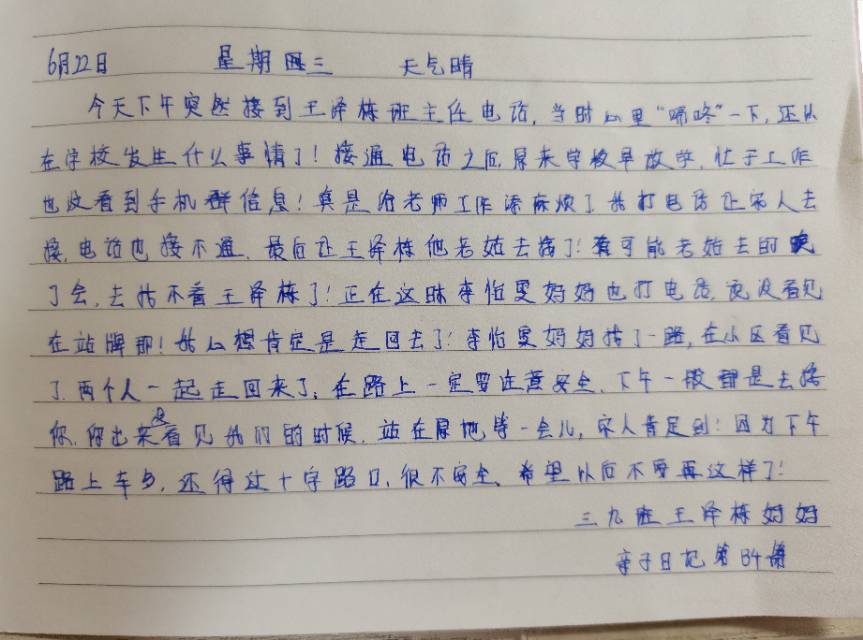 6月22日 星期三 天气晴
今天下午突然接到王泽栋班主任电话,当时心里“咯咚”一下,还以
在学校发生什么事情了!接通电话之后,原来学校早放学,忙于工作
也没看到手机群信息!真是给老师工作添麻烦了,我打电话让家人去
接,电话也接不通,最后让王泽栋他老姑去接了!有可能老姑去的晚
了会,去找不着王泽栋了!正在这时李怡雯妈妈也打电话,说没看见
在站牌那!我心想肯定是走回去了!李怡雯妈妈找了一路,在小区看见
了,两个人一起走回来了,在路上一定要注意安全,下午一般都是去接
你,你出来没看见我们的时候,站在原地等一会儿,家人肯定到!因为下午
路上车多,还得过十字路口,很不安全,希望以后不要再这样了!
三九班王泽栋妈妈
亲子日记第134篇